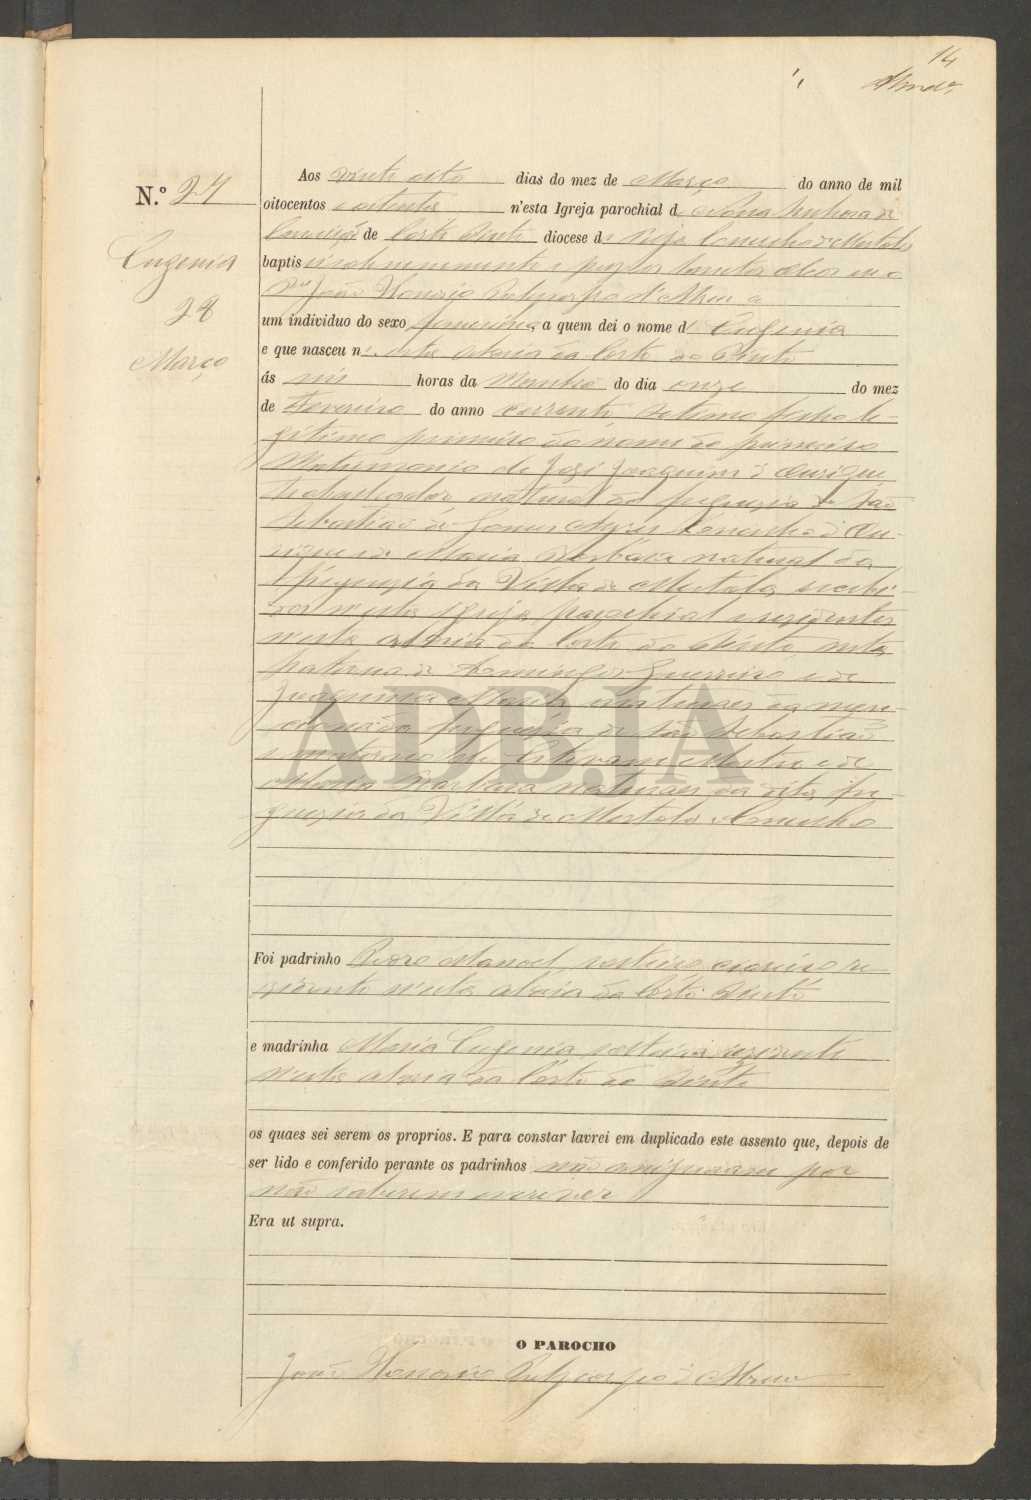 14
Abreu
N.º 27
Eugenia
28
Março
Aos vinte oito dias do mez de Março do anno de mil
oitocentos e oitenta n'esta Igreja parochial de Nossa Senhora da
Conceição de Corte Pinto diocese de Beja Concelho de Mertola
baptisei solemnemente e puz os Santos oleos eu o
P.e João Honorio Policarpo d'Abreu a
um individuo do sexo feminino, a quem dei o nome de Eugenia
e que nasceu n'esta aldeia da Corte do Pinto
ás seis horas da Manhã do dia onze do mez
de Fevereiro do anno corrente setimo filho le-
gitimo primeiro do nome do primeiro
Matrimonio de José Joaquim d'Ourique
trabalhador natural da freguezia de São
Sebastião de Gomes Ayres Concelho d'Ou-
rique e de Maria Barbara natural da
freguezia da Villa de Mertola recebi-
dos n'esta Igreja parochial e rezidentes
n'esta aldeia da Corte do Pinto, neta
paterna de Domingos Guerreiro e de
Joaquina Maria naturaes da men-
cionada freguezia de São Sebastião
e materno de Estevam Mestre e de
Maria Barbara naturaes da dita fre-
guezia da Villa de Mertola Concelho
ADBJA
Foi padrinho Pedro Manoel, solteiro re-
zidente n'esta aldeia da Corte Pinto
e madrinha Maria Eugenia, solteira rezidente
n'esta aldeia da Corte do Pinto
os quaes sei serem os proprios. E para constar lavrei em duplicado este assento que, depois de
ser lido e conferido perante os padrinhos não assignaram por
não saberem escrever
Era ut supra.
O PAROCHO
João Honorio Policarpo d'Abreu